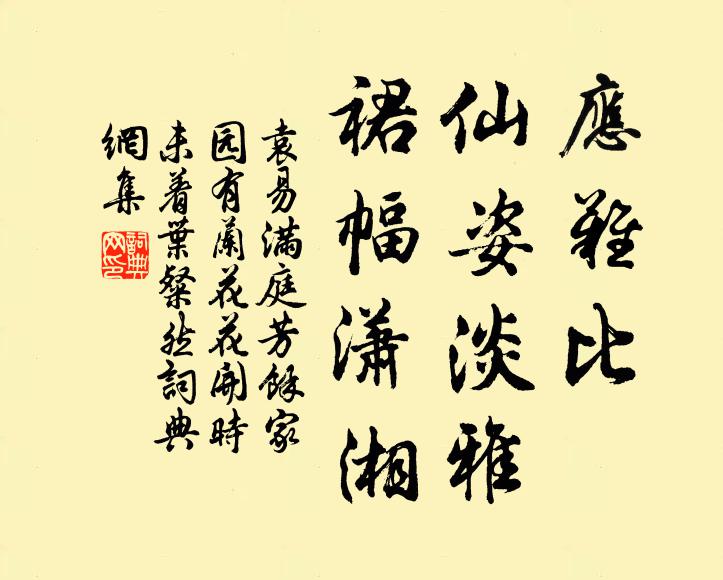 應難比
仙姿淡雅
裙幅瀟湘
袁易滿庭芳餘家
园有蘭花花開時
未着葉粲然詞典
網集
詞典
网印